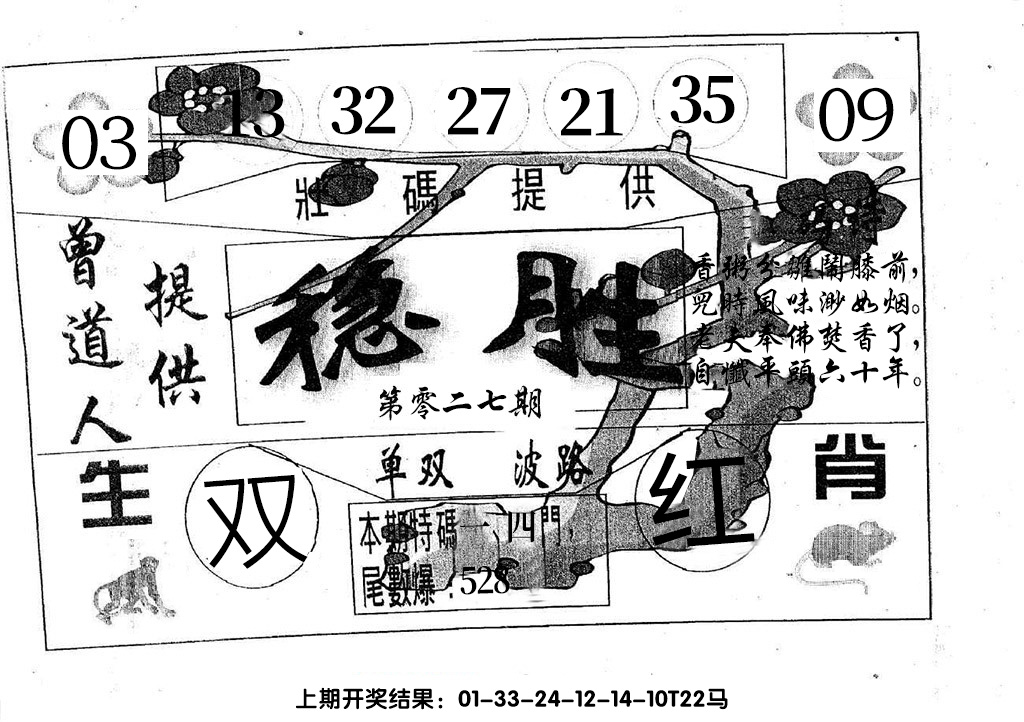 03 13 32 27 21 35 09
壯碼提供
曾道人
提供
稳胜
第零二七期
特
香粥分雏鬧膝前，
咒時風味渺如烟。
老夫奉佛焚香了，
自懺平頭六十年。
单双 波路
生肖
双
红
本期特碼一、四門，
尾數爆：528
上期开奖结果：01-33-24-12-14-10T22马